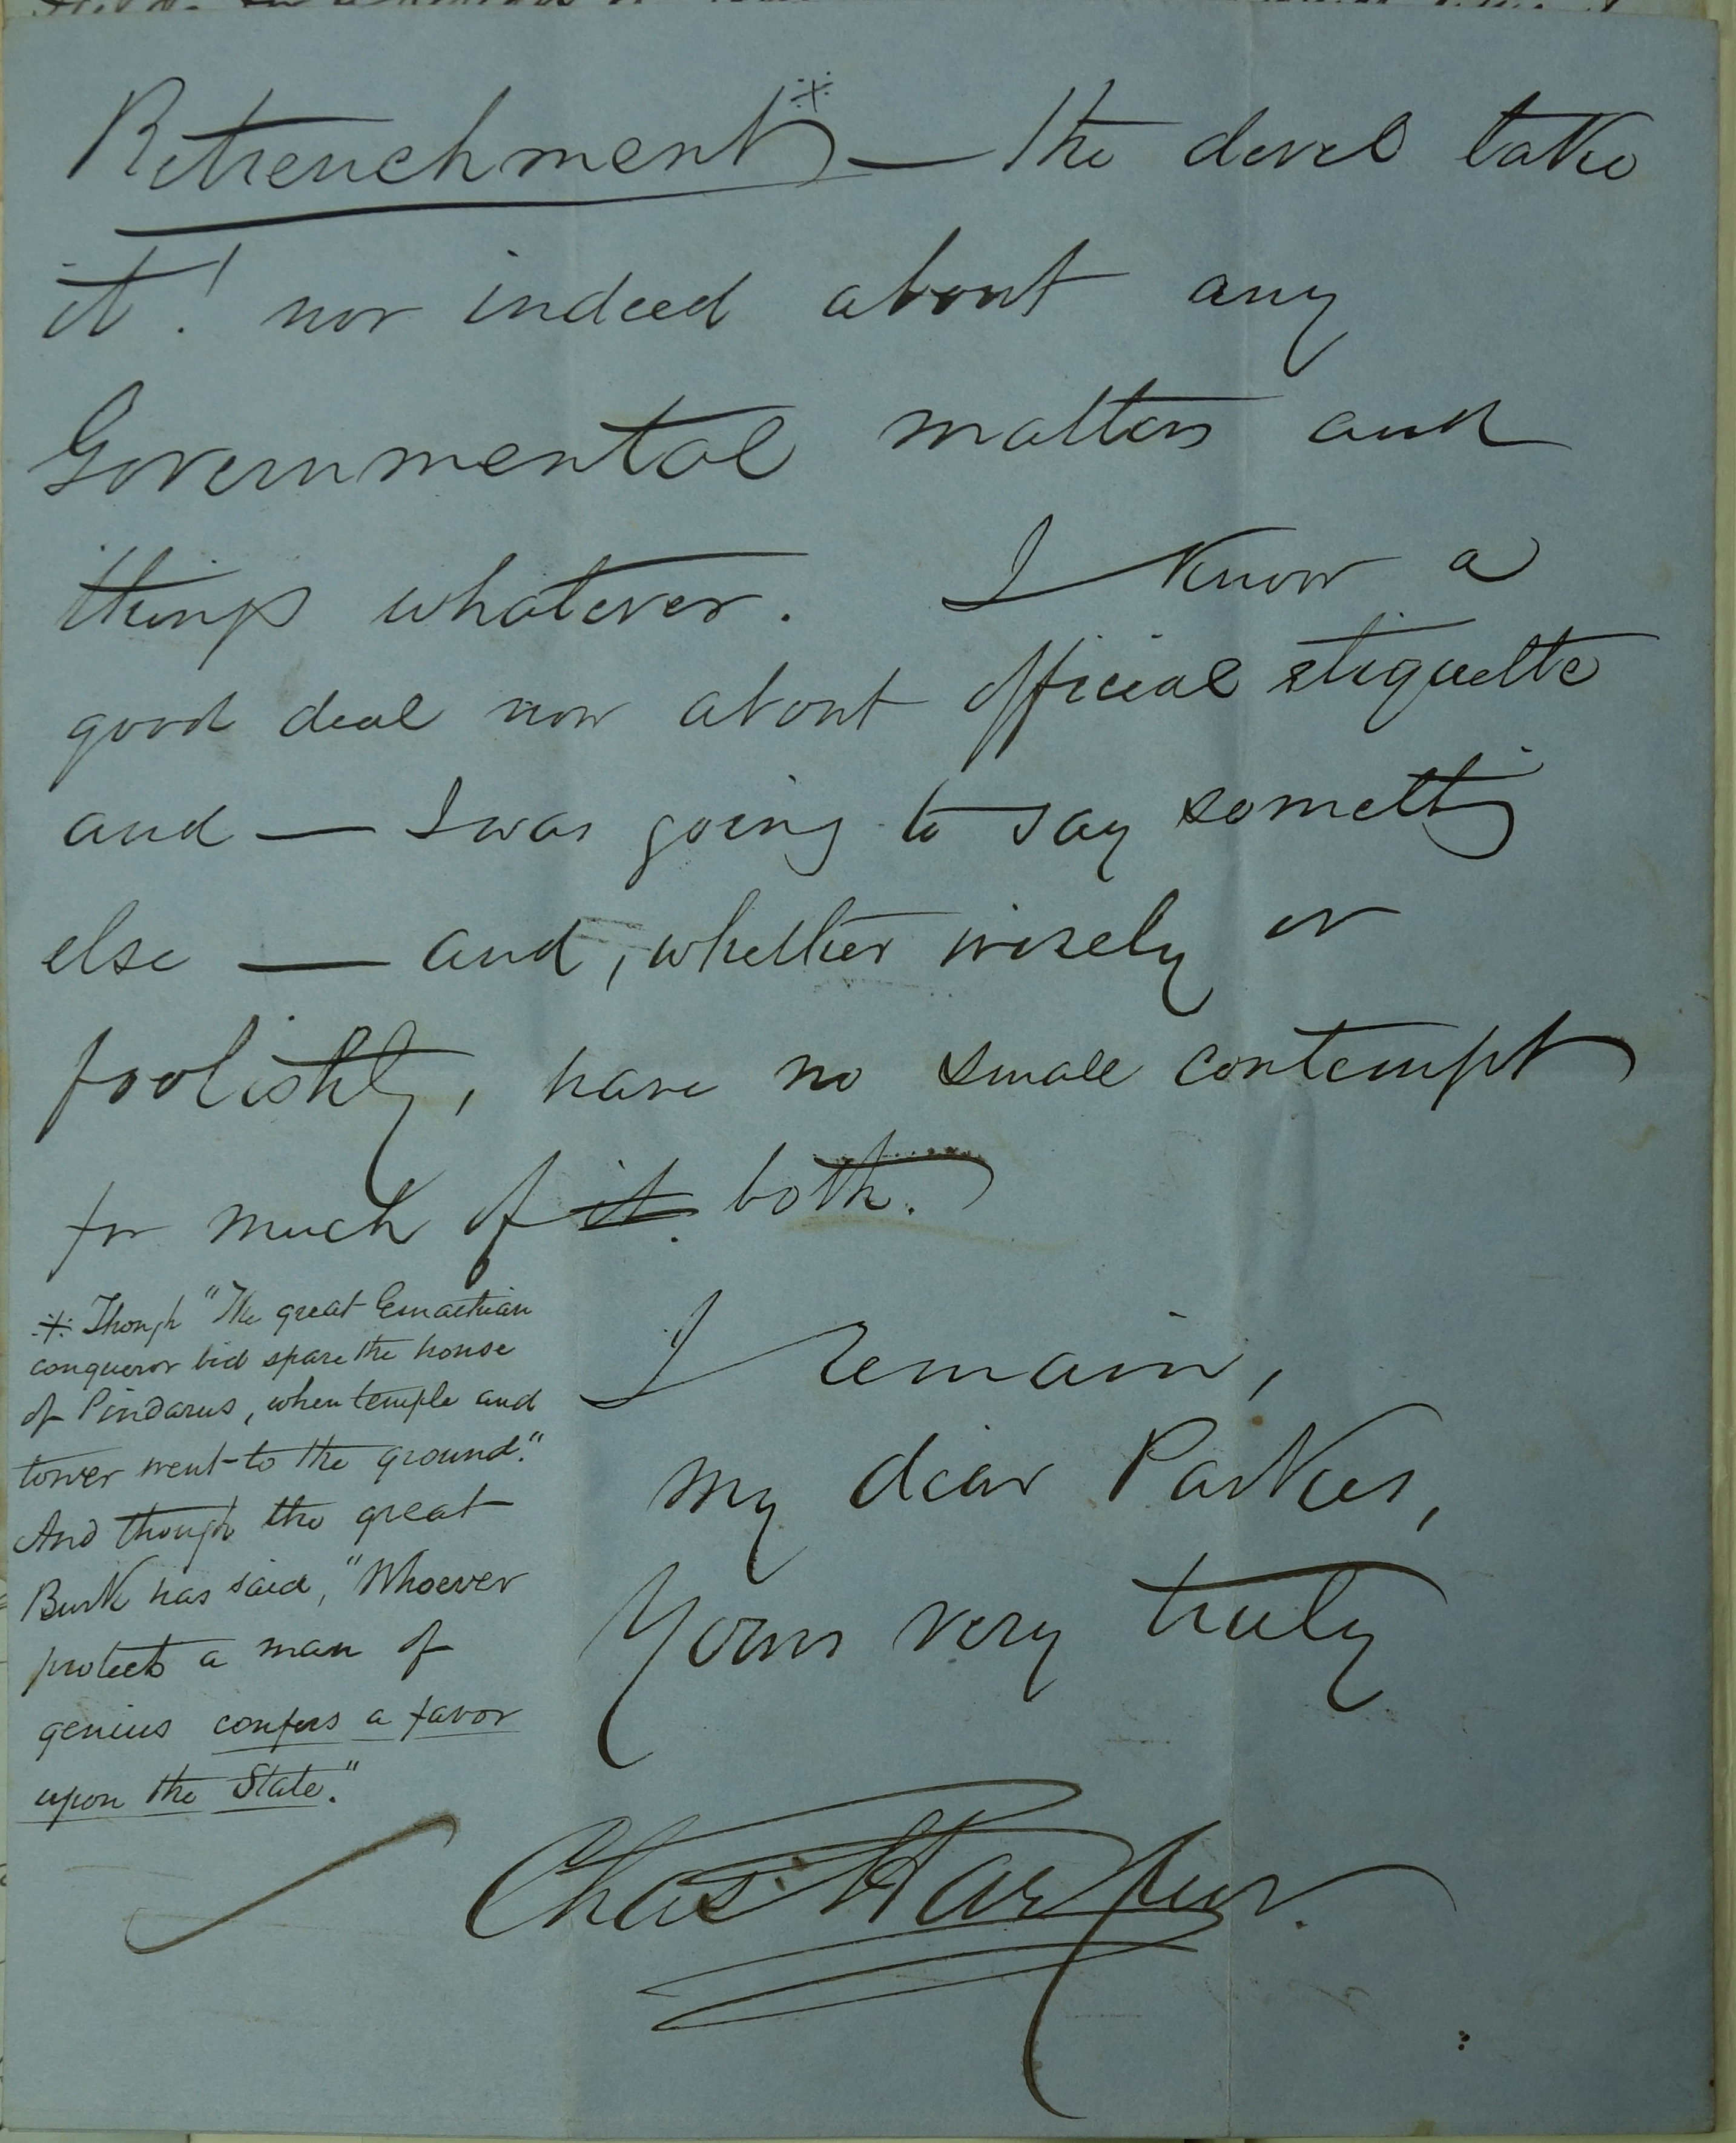 Retrenchment※ — the devel take
it! nor indeed about any
Governmental matters and
things whatever. I know a
good deal now about official etiquette
and — I was going to say something
else — and, whether wisely or
foolishly, have no small contempt
for much of it. both.
※ Though "The great Emaethian
conqueror bid spare the house
of Pindarus, when temple and
tower went to the ground."
And though the great
Burk has said, "Whoever
protects a man of
genius confers a favor
upon the State."
I remain,
my dear Parkes,
Yours very truly
Chas. Harpur.